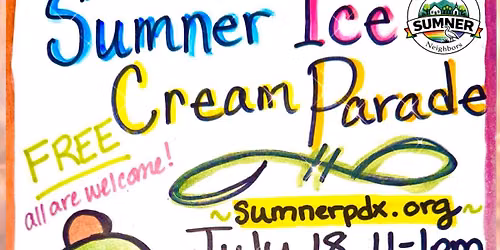 Sumner Ice
SUMNER
Neighbors
Cream Parade
FREE
all are welcome!
~sumnerpdx.org~
July 18 11-1am